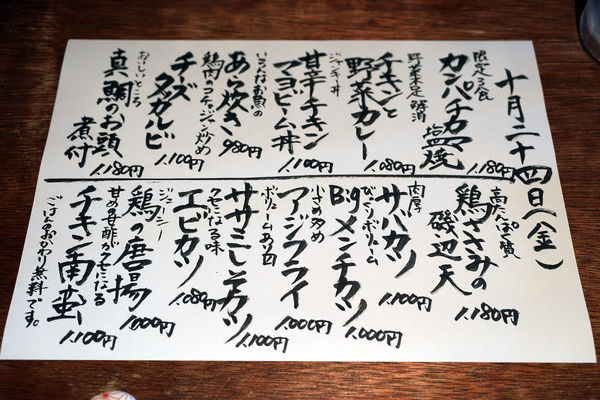 十月二十四日(金)
限定3食
カンパチカマ塩焼
1.180円
野菜不足解消
チキンと野菜カレー
1.080円
ジャンキー丼
甘辛チキンマヨビーム丼
1.100円
いろんなお魚の
あら炊き
980円
鶏肉のコチュジャン炒め
チーズダカルビ
1.100円
おいしいところ
真鯛のお頭煮付
1.180円
高たんぱく質
鶏ささみの磯辺天
1.180円
肉厚
サバカツ
1.100円
びっくりボリューム
Bigメンチカツ
1.000円
小さめ多め
アジフライ
1.000円
ボリューム満点
クセになる味
ササミしそカツ
1.100円
エビカツ
1.080円
ジューシー
鶏の唐揚
1.000円
甘めの甘酢がクセになる
チキン南蛮
1.100円
ごはんのおかわり無料です。